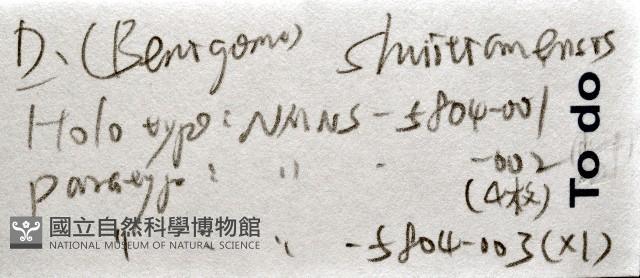 D. (Benrigoma) shuiticmensis
Holotype: NMNS-5804-001
paratype: 〃 - -002
(4枚)
〃 〃 -5804-003(x1)
To do
國立自然科學博物館
NATIONAL MUSEUM OF NATURAL SCIENCE